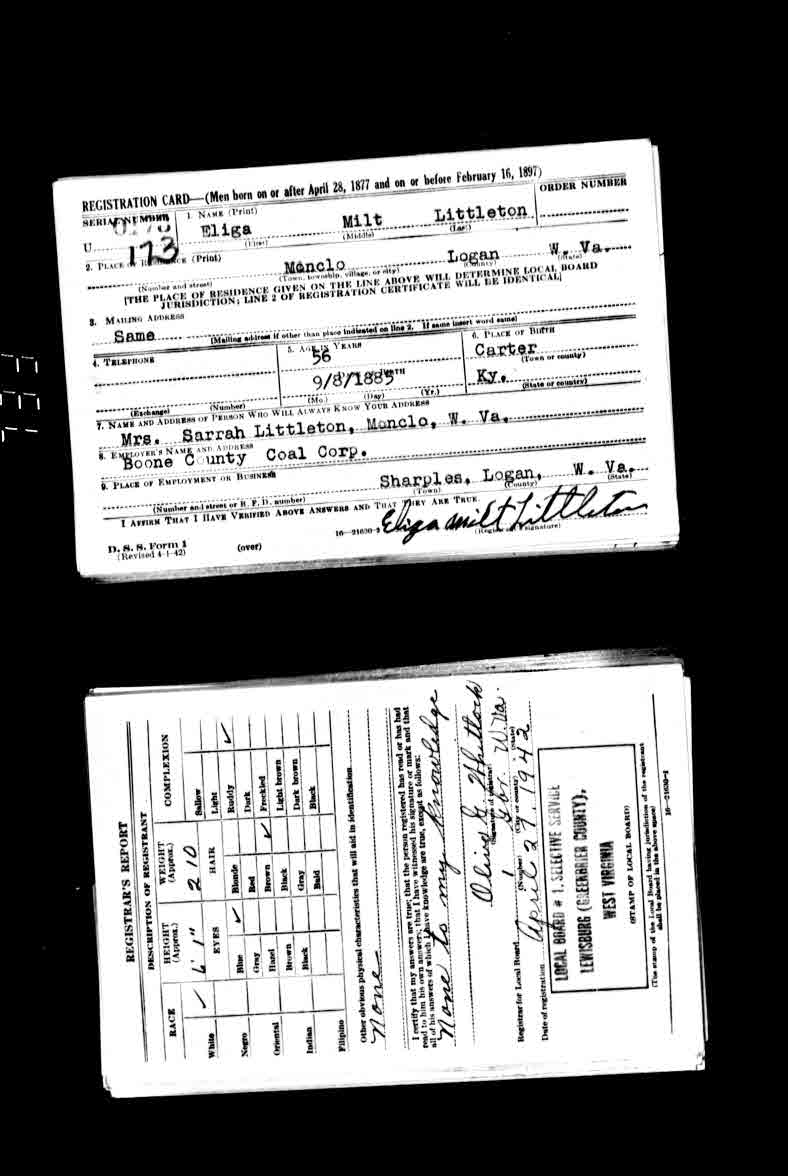 REGISTRATION CARD—(Men born on or after April 28, 1877 and on or before February 16, 1897)
SERIAL NUMBER
1. NAME (Print)
ORDER NUMBER
U 173
Eliga Milt Littleton
(First) (Middle) (Last)
2. PLACE OF RESIDENCE (Print)
Monclo Logan W. Va.
(Number and street) (Town, township, village, or city) (State)
[THE PLACE OF RESIDENCE GIVEN ON THE LINE ABOVE WILL DETERMINE LOCAL BOARD
JURISDICTION; LINE 2 OF REGISTRATION CERTIFICATE WILL BE IDENTICAL]
3. MAILING ADDRESS
Same
[Mailing address if other than place indicated on line 2. If same insert word same]
4. TELEPHONE
5. AGE IN YEARS
56
6. PLACE OF BIRTH
Carter
(Town or county)
9/8/1885
(Mo.) (Day) (Yr.)
Ky.
(State or country)
(Exchange) (Number)
7. NAME AND ADDRESS OF PERSON WHO WILL ALWAYS KNOW YOUR ADDRESS
Mrs. Sarrah Littleton, Monclo, W. Va.
8. EMPLOYER'S NAME AND ADDRESS
Boone County Coal Corp.
9. PLACE OF EMPLOYMENT OR BUSINESS
Sharples, Logan, W. Va.
(Number and street or R. F. D. number) (Town) (County) (State)
I AFFIRM THAT I HAVE VERIFIED ABOVE ANSWERS AND THAT THEY ARE TRUE.
Eliga Milt Littleton
(Registrant's signature)
D. S. S. Form 1
(Revised 4-1-42)
(over)
16—21630-2
REGISTRAR'S REPORT
DESCRIPTION OF REGISTRANT
RACE
HEIGHT (Approx.)
WEIGHT (Approx.)
COMPLEXION
White ✓
6' 1"
210
EYES
HAIR
Sallow
Light
Ruddy ✓
Dark
Freckled
Light brown
Dark brown
Black
Negro
Oriental
Indian
Filipino
Blue ✓
Gray
Hazel
Brown
Black
Blonde
Red
Brown ✓
Black
Gray
Bald
Other obvious physical characteristics that will aid in identification
None
I certify that my answers are true; that the person registered has read or has had
read to him his own answers; that I have witnessed his signature or mark and that
all of his answers of which I have knowledge are true, except as follows:
None to my knowledge
(Signature of registrar)
Registrar for Local Board 1 W. Va.
(Number) (City or county) (State)
Date of registration April 27, 1942
LOCAL BOARD # 1, SELECTIVE SERVICE
LEWISBURG (GREENBRIER COUNTY),
WEST VIRGINIA
(STAMP OF LOCAL BOARD)
(The stamp of the Local Board having jurisdiction of the registrant
shall be placed in the above space)
16—21630-1